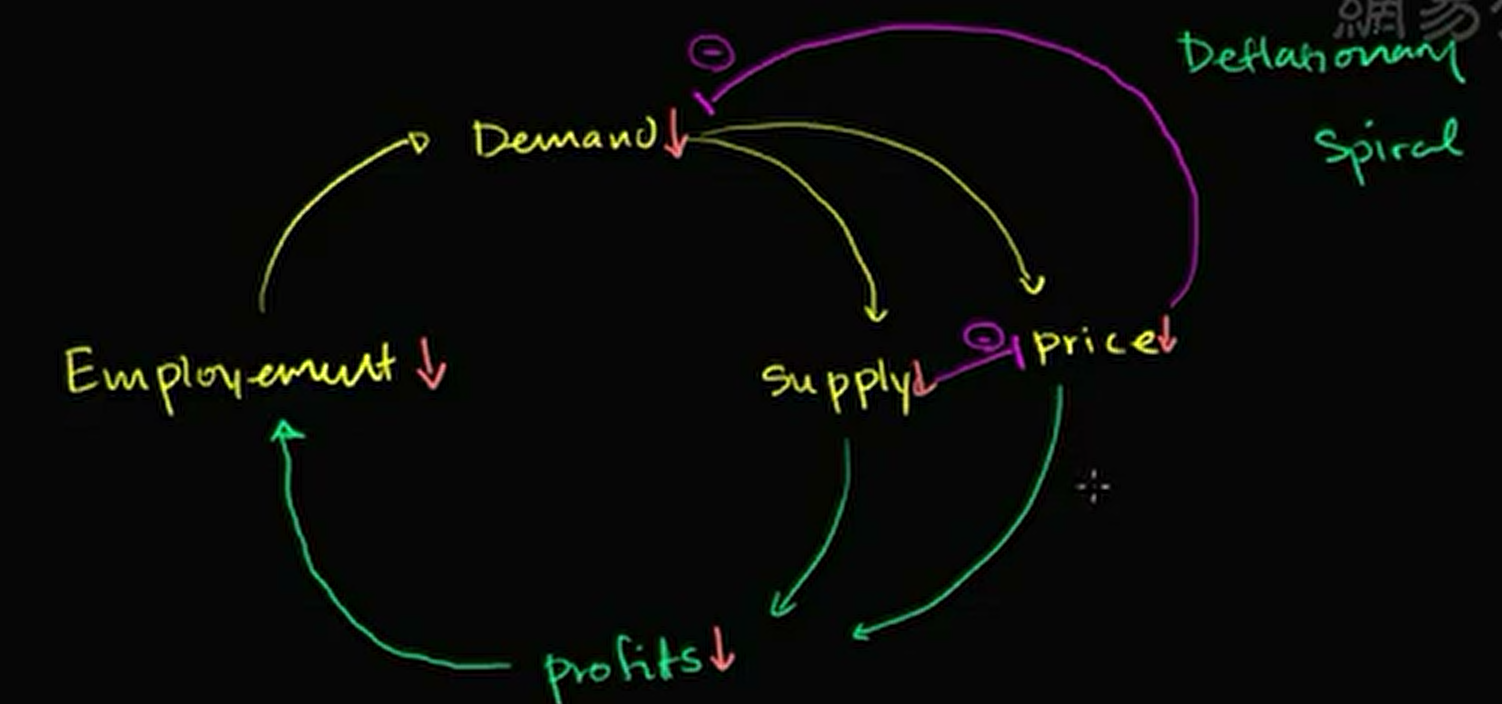 網易
Deflationary
Spiral
Demand
Employement
Supply
price
profits